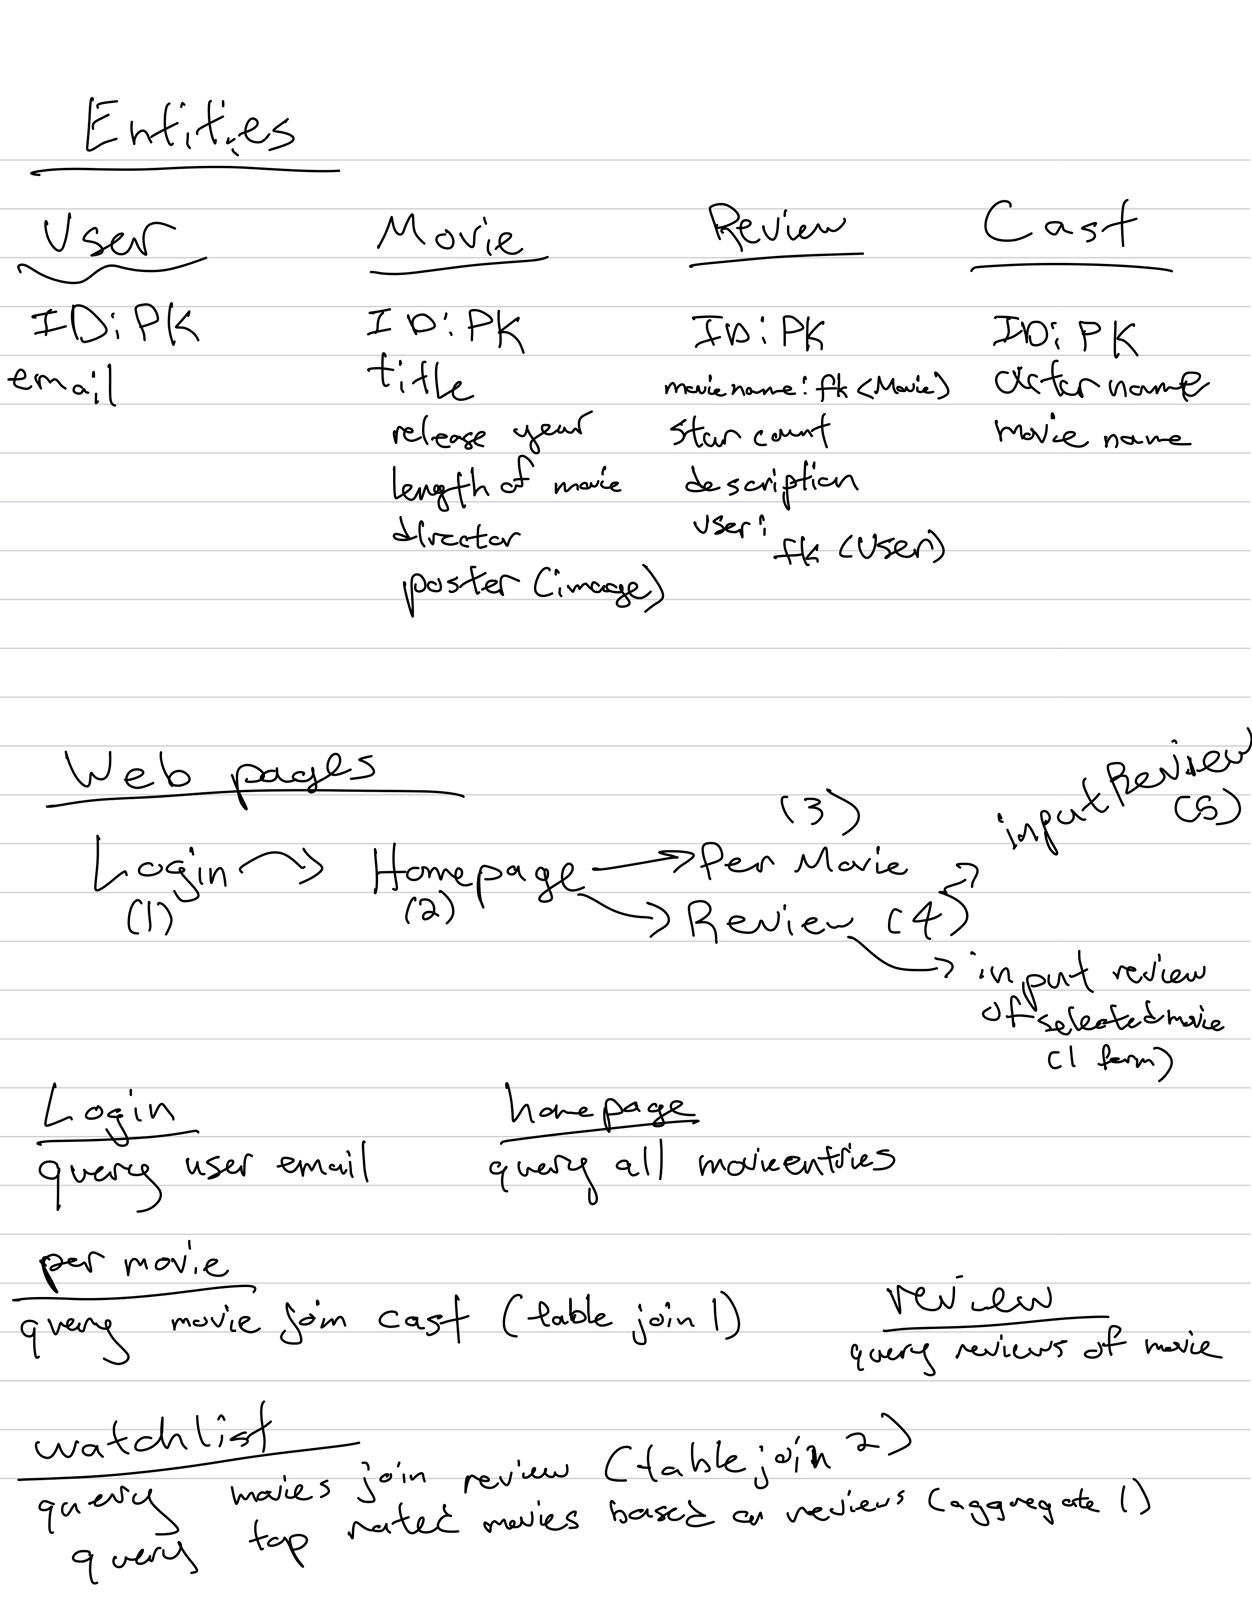 Entities
User
ID: PK
email
Movie
ID: PK
title
release year
length of movie
director
poster (image)
Review
ID: PK
movie name: fk (Movie)
star count
description
user:
fk (User)
Cast
ID: PK
actor name
movie name
Web pages
Login
(1)
Homepage
(2)
(3)
Per Movie
Review (4)
input Review
(5)
input review
of selected movie
(1 form)
Login
query user email
homepage
query all movie entries
per movie
query movie join cast (table join 1)
review
query reviews of movie
watchlist
query movies join review (table join 2)
query top rated movies based on reviews (aggregate 1)